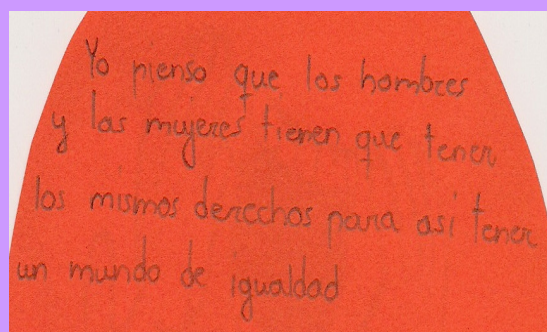 Yo pienso que los hombres
y las mujeres tienen que tener
los mismos derechos para así tener
un mundo de igualdad